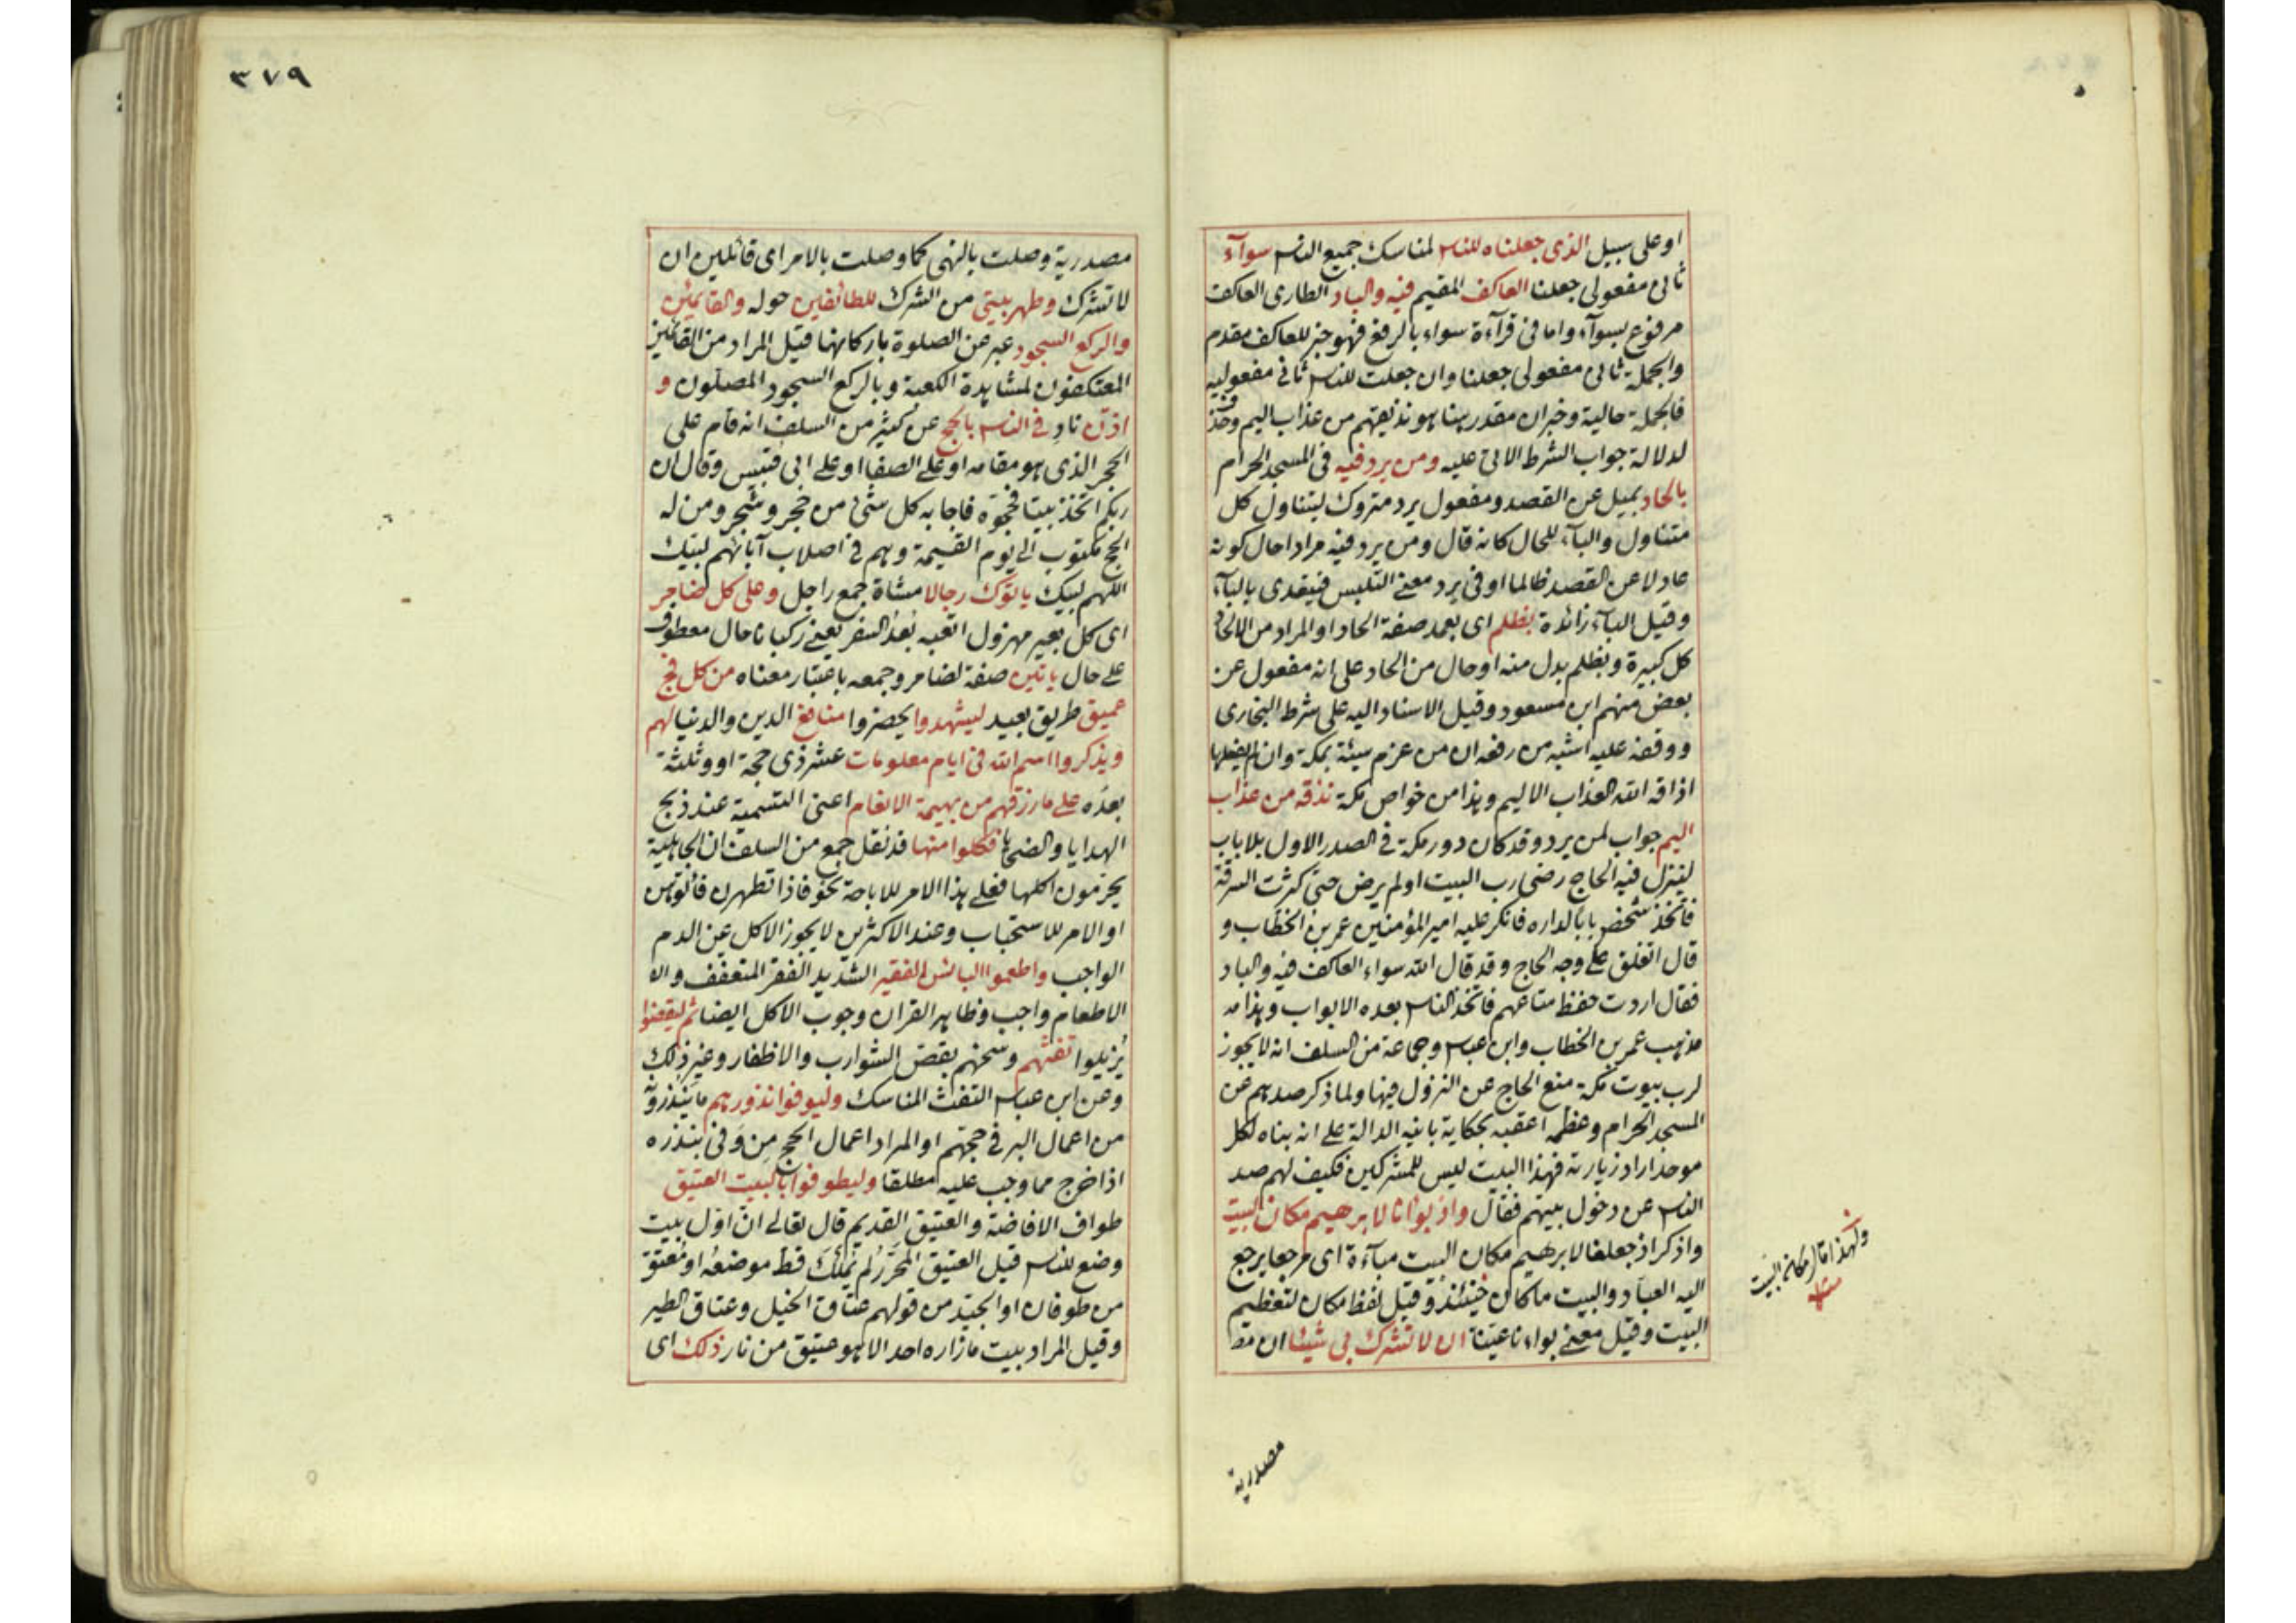 او على سبيل الذى جعلناه للناس لمناسك جميع الناس سوآء
ثانى مفعولى جعلنا العاكف المقيم فيه والباد الطارى العاكف
مرفوع بسوآء واما فى قرآءة سواء بالرفع فهو خبر للعاكف مقدم
والجملة ثانى مفعولى جعلنا وان جعلت للناس ثانى مفعوليه
فالجملة حالية وخبر ان مقدر هنا هو نذيقهم من عذاب اليم وحذف
لدلالة جواب الشرط الاتى عليه ومن يرد فيه فى المسجد الحرام
بالحاد بميل عن القصد ومفعول يرد متروك ليتناول كل
متناول والبآء للحال كانه قال ومن يرد فيه مرادا حال كونه
عادلا عن القصد ظالما او فى يرد معنى التلبس فيتعدى بالبآء
وقيل البآء زائدة بظلم اى بعمد صفة الحاد او المراد من الالحاد
كل كبيرة وبظلم بدل منه او حال من الحاد على انه مفعول عن
بعض منهم ابن مسعود وقيل الاسناد اليه على شرط البخارى
ووقفه عليه اشبه من رفعه ان من عزم سيئة بمكة وان لم يفعلها
اذاقه الله العذاب الاليم وهذا من خواص مكة نذقه من عذاب
اليم جواب لمن يرد وقد كان دور مكة فى الصدر الاول بلا باب
لينزل فيه الحاج رضى رب البيت او لم يرض حتى كثرت السرقة
فاتخذ شخص بابا لداره فانكر عليه امير المؤمنين عمر بن الخطاب و
قال اتغلق على وجه الحاج وقد قال الله سواء العاكف فيه والباد
فقال اردت حفظ متاعهم فاتخذ الناس بعده الابواب وهذا مه
مذهب عمر بن الخطاب وابن عباس وجماعة من السلف انه لا يجوز
لرب بيوت مكة منع الحاج عن النزول فيها ولما ذكر صدهم عن
المسجد الحرام وعظمه اعقبه بحكاية بانيه الدالة على انه بناه لكل
موحد اراد زيارته فهذا البيت ليس للمشركين فكيف لهم صد
الناس عن دخول بيتهم فقال واذ بوانا لابرهيم مكان البيت
واذكر اذ جعلنا لابرهيم مكان البيت مبآءة اى مرجعا يرجع
اليه العباد والبيت ما كان حينئذ وقيل لفظ مكان لتعظيم
البيت وقيل معنى بواءنا عينا ان لا تشرك بى شيئا ان مصـ
ولهذا قال مكان البيت
منه
مصدرية
٣٧٩
مصدرية وصلت بالنهى كما وصلت بالامر اى قائلين ان
لا تشرك وطهر بيتى من الشرك للطائفين حوله والقائمين
والركع السجود عبر عن الصلوة باركانها قيل المراد من القائمين
المعتكفون لمشاهدة الكعبة وبالركع السجود المصلون و
اذن ناد فى الناس بالحج عن كثير من السلف انه قام على
الحجر الذى هو مقامه او على الصفا او على ابى قبيس وقال ان
ربكم اتخذ بيتا فحجوه فاجابه كل شئ من حجر وشجر ومن له
الحج مكتوب الى يوم القيمة وهم فى اصلاب آبائهم لبيك
اللهم لبيك ياتوك رجالا مشاة جمع راجل وعلى كل ضامر
اى كل بعير مهزول اتعبه بعد السفر يعنى ركبانا حال معطوف
على حال ياتين صفة لضامر وجمعه باعتبار معناه من كل فج
عميق طريق بعيد ليشهدوا يحضروا منافع الدين والدنيا لهم
ويذكروا اسم الله فى ايام معلومات عشر ذى حجة او وثلثة
بعده على ما رزقهم من بهيمة الانعام اعنى التسمية عند ذبح
الهدايا والضحايا فكلوا منها قد نقل جمع من السلف ان الجاهلية
يحرمون اكلها فعلى هذا الامر للاباحة نحو فاذا تطهرن فأتوهن
او الامر للاستحباب وعند الاكثرين لا يجوز الاكل عن الدم
الواجب واطعموا البائس الفقير الشديد الفقر المتعفف والا
الاطعام واجب وظاهر القران وجوب الاكل ايضا ثم ليقضوا
يزيلوا تفثهم وسخهم بقص الشوارب والاظفار وغير ذلك
وعن ابن عباس التفث المناسك وليوفوا نذورهم ما ينذرونه
من اعمال البر فى حجتهم او المراد اعمال الحج من وفى بنذره
اذا خرج مما وجب عليه مطلقا وليطوفوا بالبيت العتيق
طواف الافاضة والعتيق القديم قال تعالى ان اول بيت
وضع للناس قيل العتيق المحرر لم يملك قط موضعه او معتق
من طوفان او الجيد من قولهم عتاق الخيل وعتاق الطير
وقيل المراد بيت ما زاره احد الا هو عتيق من نار ذلك اى